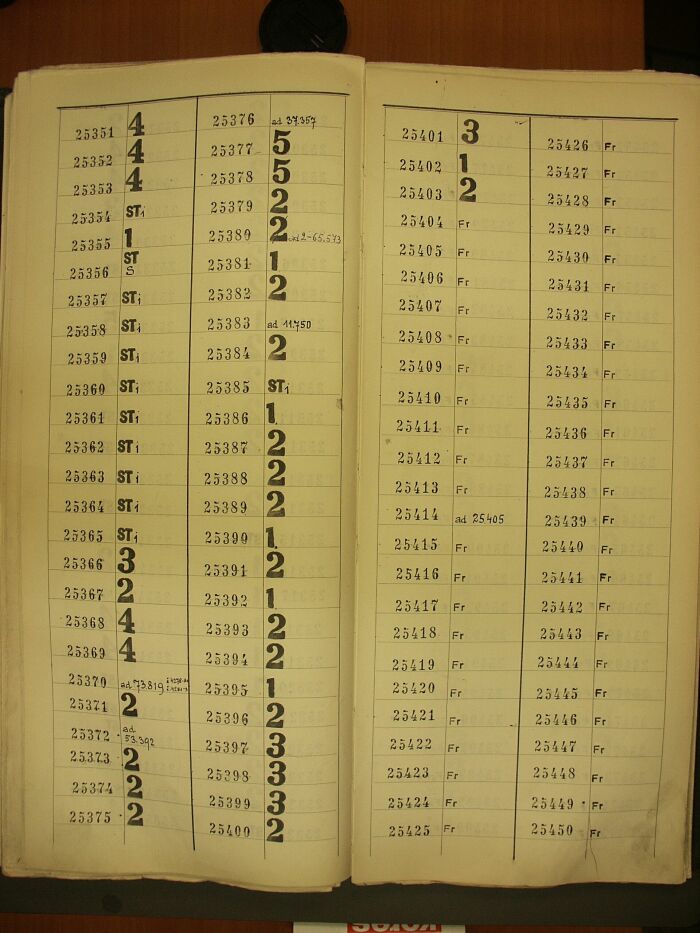 25351 4
25352 4
25353 4
25354 STi
25355 1
25356 ST S
25357 STi
25358 STi
25359 STi
25360 STi
25361 STi
25362 STi
25363 STi
25364 STi
25365 STi
25366 3
25367 2
25368 4
25369 4
25370 ad 73.819
25371 2
25372 ad 53.392
25373 2
25374 2
25375 2
25376 ad 37.357
25377 5
25378 5
25379 2
25380 2 ad 2-65.573
25381 1
25382 2
25383 ad 11.750
25384 2
25385 STi
25386 1
25387 2
25388 2
25389 2
25390 1
25391 2
25392 1
25393 2
25394 2
25395 1
25396 2
25397 3
25398 3
25399 3
25400 2
25401 3
25402 1
25403 2
25404 Fr
25405 Fr
25406 Fr
25407 Fr
25408 Fr
25409 Fr
25410 Fr
25411 Fr
25412 Fr
25413 Fr
25414 ad 25.405
25415 Fr
25416 Fr
25417 Fr
25418 Fr
25419 Fr
25420 Fr
25421 Fr
25422 Fr
25423 Fr
25424 Fr
25425 Fr
25426 Fr
25427 Fr
25428 Fr
25429 Fr
25430 Fr
25431 Fr
25432 Fr
25433 Fr
25434 Fr
25435 Fr
25436 Fr
25437 Fr
25438 Fr
25439 Fr
25440 Fr
25441 Fr
25442 Fr
25443 Fr
25444 Fr
25445 Fr
25446 Fr
25447 Fr
25448 Fr
25449 Fr
25450 Fr